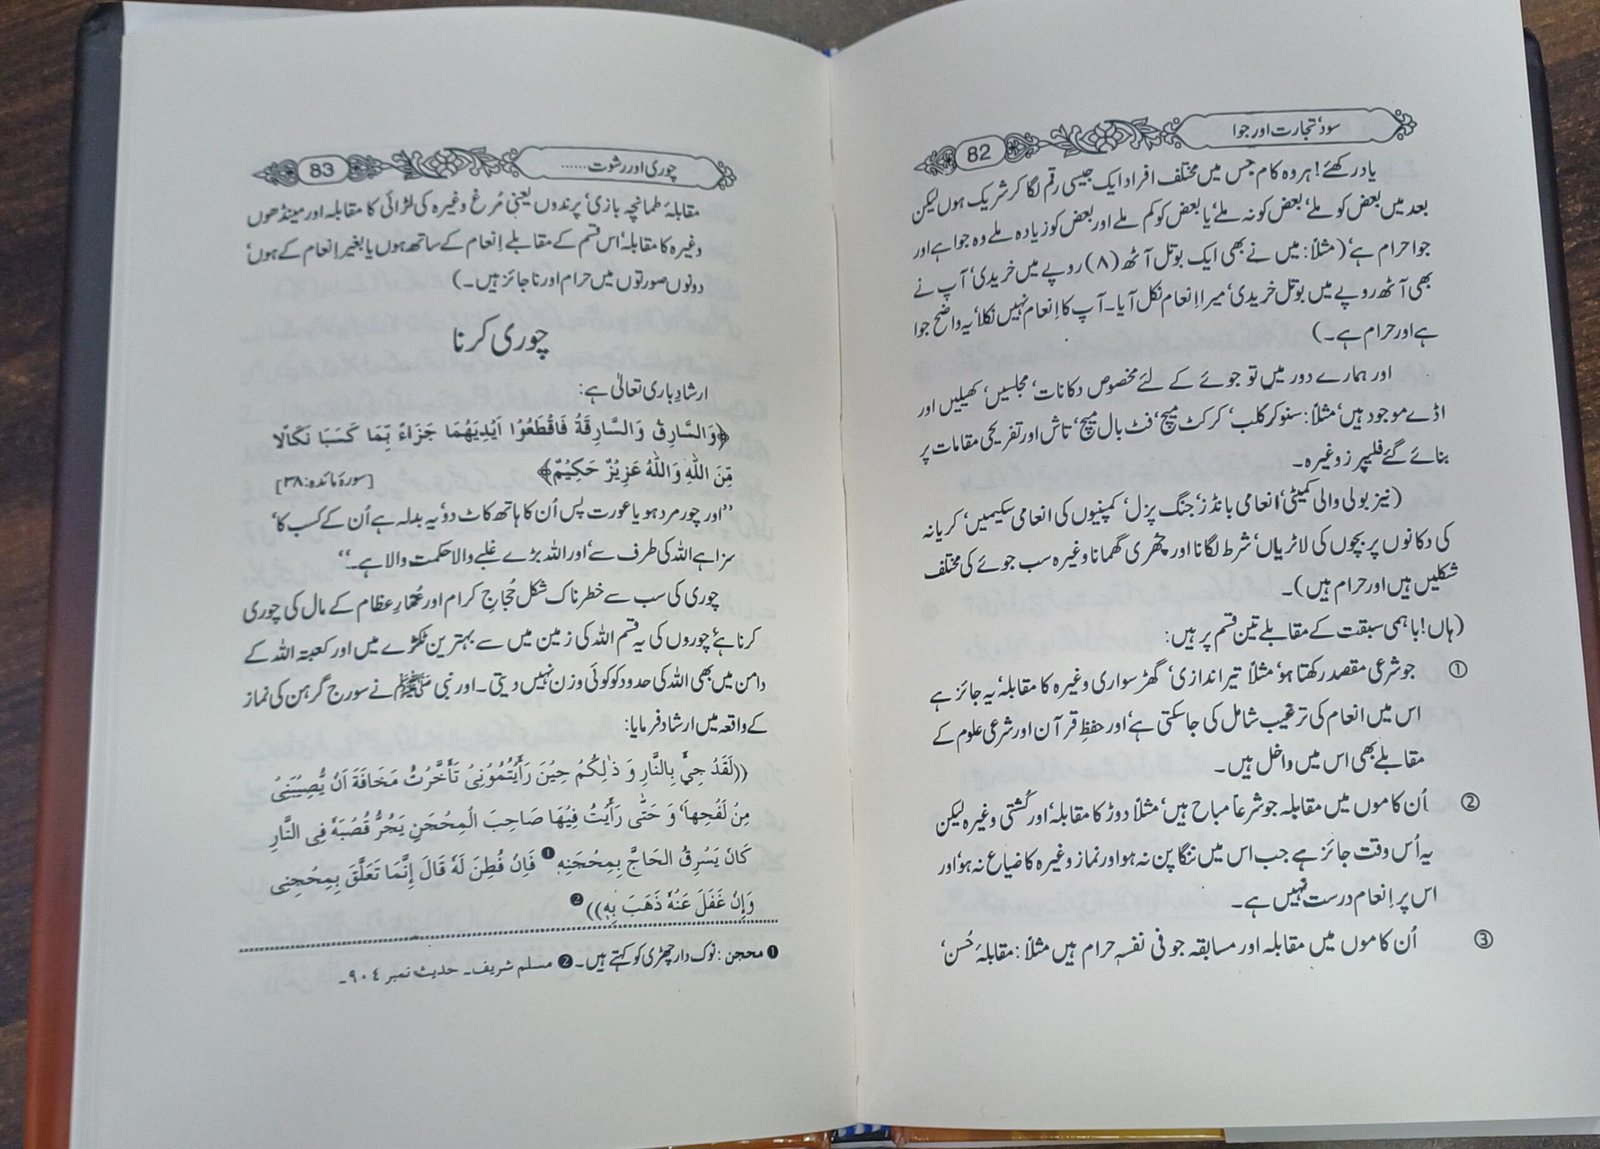 سود‘ تجارت اور جوا
82
یاد رکھئے! ہر وہ کام جس میں مختلف افراد ایک جیسی رقم لگا کر شریک ہوں لیکن
بعد میں بعض کو ملے‘ بعض کو نہ ملے‘ یا بعض کو کم ملے اور بعض کو زیادہ ملے وہ جوا ہے اور
جوا حرام ہے‘ (مثلاً: میں نے بھی ایک بوتل آٹھ (۸) روپے میں خریدی‘ آپ نے
بھی آٹھ روپے میں بوتل خریدی‘ میرا اِنعام نکل آیا۔ آپ کا اِنعام نہیں نکلا‘ یہ واضح جوا
ہے اور حرام ہے۔)
اور ہمارے دور میں تو جوئے کے لئے مخصوص دکانات‘ مجلسیں‘ کھیلیں اور
اڈے موجود ہیں‘ مثلاً: سنوکر کلب‘ کرکٹ میچ‘ فٹ بال میچ‘ تاش اور تفریحی مقامات پر
بنائے گئے فلیپرز وغیرہ۔
(نیز بولی والی کمیٹی‘ انعامی بانڈز‘ جنگ پزل‘ کمپنیوں کی انعامی سکیمیں‘ کریانہ
کی دکانوں پر بچوں کی لاٹریاں‘ شرط لگانا اور چھری گھمانا وغیرہ سب جوئے کی مختلف
شکلیں ہیں اور حرام ہیں)۔
(ہاں! باہمی سبقت کے مقابلے تین قسم پر ہیں:
① جو شرعی مقصد رکھتا ہو‘ مثلاً تیر اندازی‘ گھڑ سواری وغیرہ کا مقابلہ‘ یہ جائز ہے
اس میں انعام کی ترغیب شامل کی جاسکتی ہے‘ اور حفظِ قرآن اور شرعی علوم کے
مقابلے بھی اس میں داخل ہیں۔
② اُن کاموں میں مقابلہ جو شرعاً مباح ہیں‘ مثلاً دوڑ کا مقابلہ‘ اور کُشتی وغیرہ لیکن
یہ اُس وقت جائز ہے جب اس میں ننگا پن نہ ہو اور نماز وغیرہ کا ضیاع نہ ہو‘ اور
اس پر اِنعام درست نہیں ہے۔
③ اُن کاموں میں مقابلہ اور مسابقہ جو فی نفسہٖ حرام ہیں مثلاً: مقابلہٴ حُسن‘
چوری اور رشوت ......
83
مقابلہٴ طمانچہ بازی‘ پرندوں یعنی مُرغ وغیرہ کی لڑائی کا مقابلہ اور مینڈھوں
وغیرہ کا مقابلہ‘ اس قسم کے مقابلے اِنعام کے ساتھ ہوں یا بغیر اِنعام کے ہوں‘
دونوں صورتوں میں حرام اور ناجائز ہیں۔)
چوری کرنا
ارشادِ باری تعالیٰ ہے:
﴿وَالسَّارِقُ وَالسَّارِقَةُ فَاقْطَعُوْا اَيْدِيَهُمَا جَزَاءً بِّمَا كَسَبَا نَكَالًا
مِّنَ اللّٰهِ وَاللّٰهُ عَزِيْزٌ حَكِيْمٌ﴾ [سورۃ مائدہ:۳۸]
”اور چور مرد ہو یا عورت پس اُن کا ہاتھ کاٹ دو‘ یہ بدلہ ہے اُن کے کسب کا‘
سزا ہے اللہ کی طرف سے‘ اور اللہ بڑے غلبے والا حکمت والا ہے۔“
چوری کی سب سے خطرناک شکل حُجاجِ کرام اور عُمّارِ عظام کے مال کی چوری
کرنا ہے‘ چوروں کی یہ قسم اللہ کی زمین میں سے بہترین ٹکڑے میں اور کعبۃ اللہ کے
دامن میں بھی اللہ کی حدود کو کوئی وزن نہیں دیتی۔ اور نبی ﷺ نے سورج گرہن کی نماز
کے واقعہ میں ارشاد فرمایا:
((لَقَدْ جِيْءَ بِالنَّارِ وَ ذٰلِكُمْ حِيْنَ رَأَيْتُمُوْنِيْ تَأَخَّرْتُ مَخَافَةَ اَنْ يُّصِيْبَنِيْ
مِنْ لَفْحِهَا‘ وَ حَتّٰى رَأَيْتُ فِيْهَا صَاحِبَ الْمِحْجَنِ يَجُرُّ قُصْبَهٗ فِى النَّارِ
كَانَ يَسْرِقُ الْحَاجَّ بِمِحْجَنِهٖ❶ فَاِنْ فُطِنَ لَهٗ قَالَ إِنَّمَا تَعَلَّقَ بِمِحْجَنِىْ
وَإِنْ غَفَلَ عَنْهُ ذَهَبَ بِهٖ))❷
❶ محجن: نوک دار چھڑی کو کہتے ہیں۔ ❷ مسلم شریف۔ حدیث نمبر ۹۰۴۔